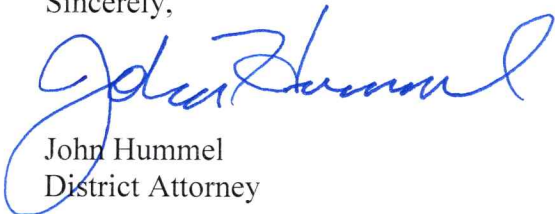 Sincerely,
John Hummel
John Hummel
District Attorney